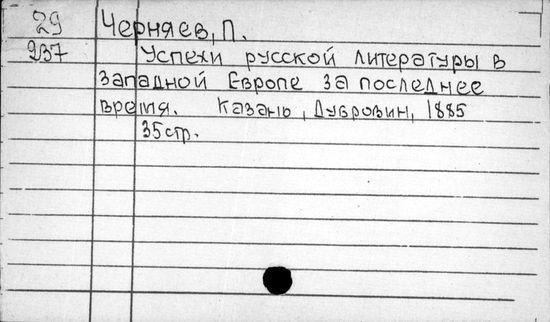 29 Черняев, П.
237 Успехи русской литературы в
западной Европе за последнее
время. Казань, Дубровин, 1885
35 стр.